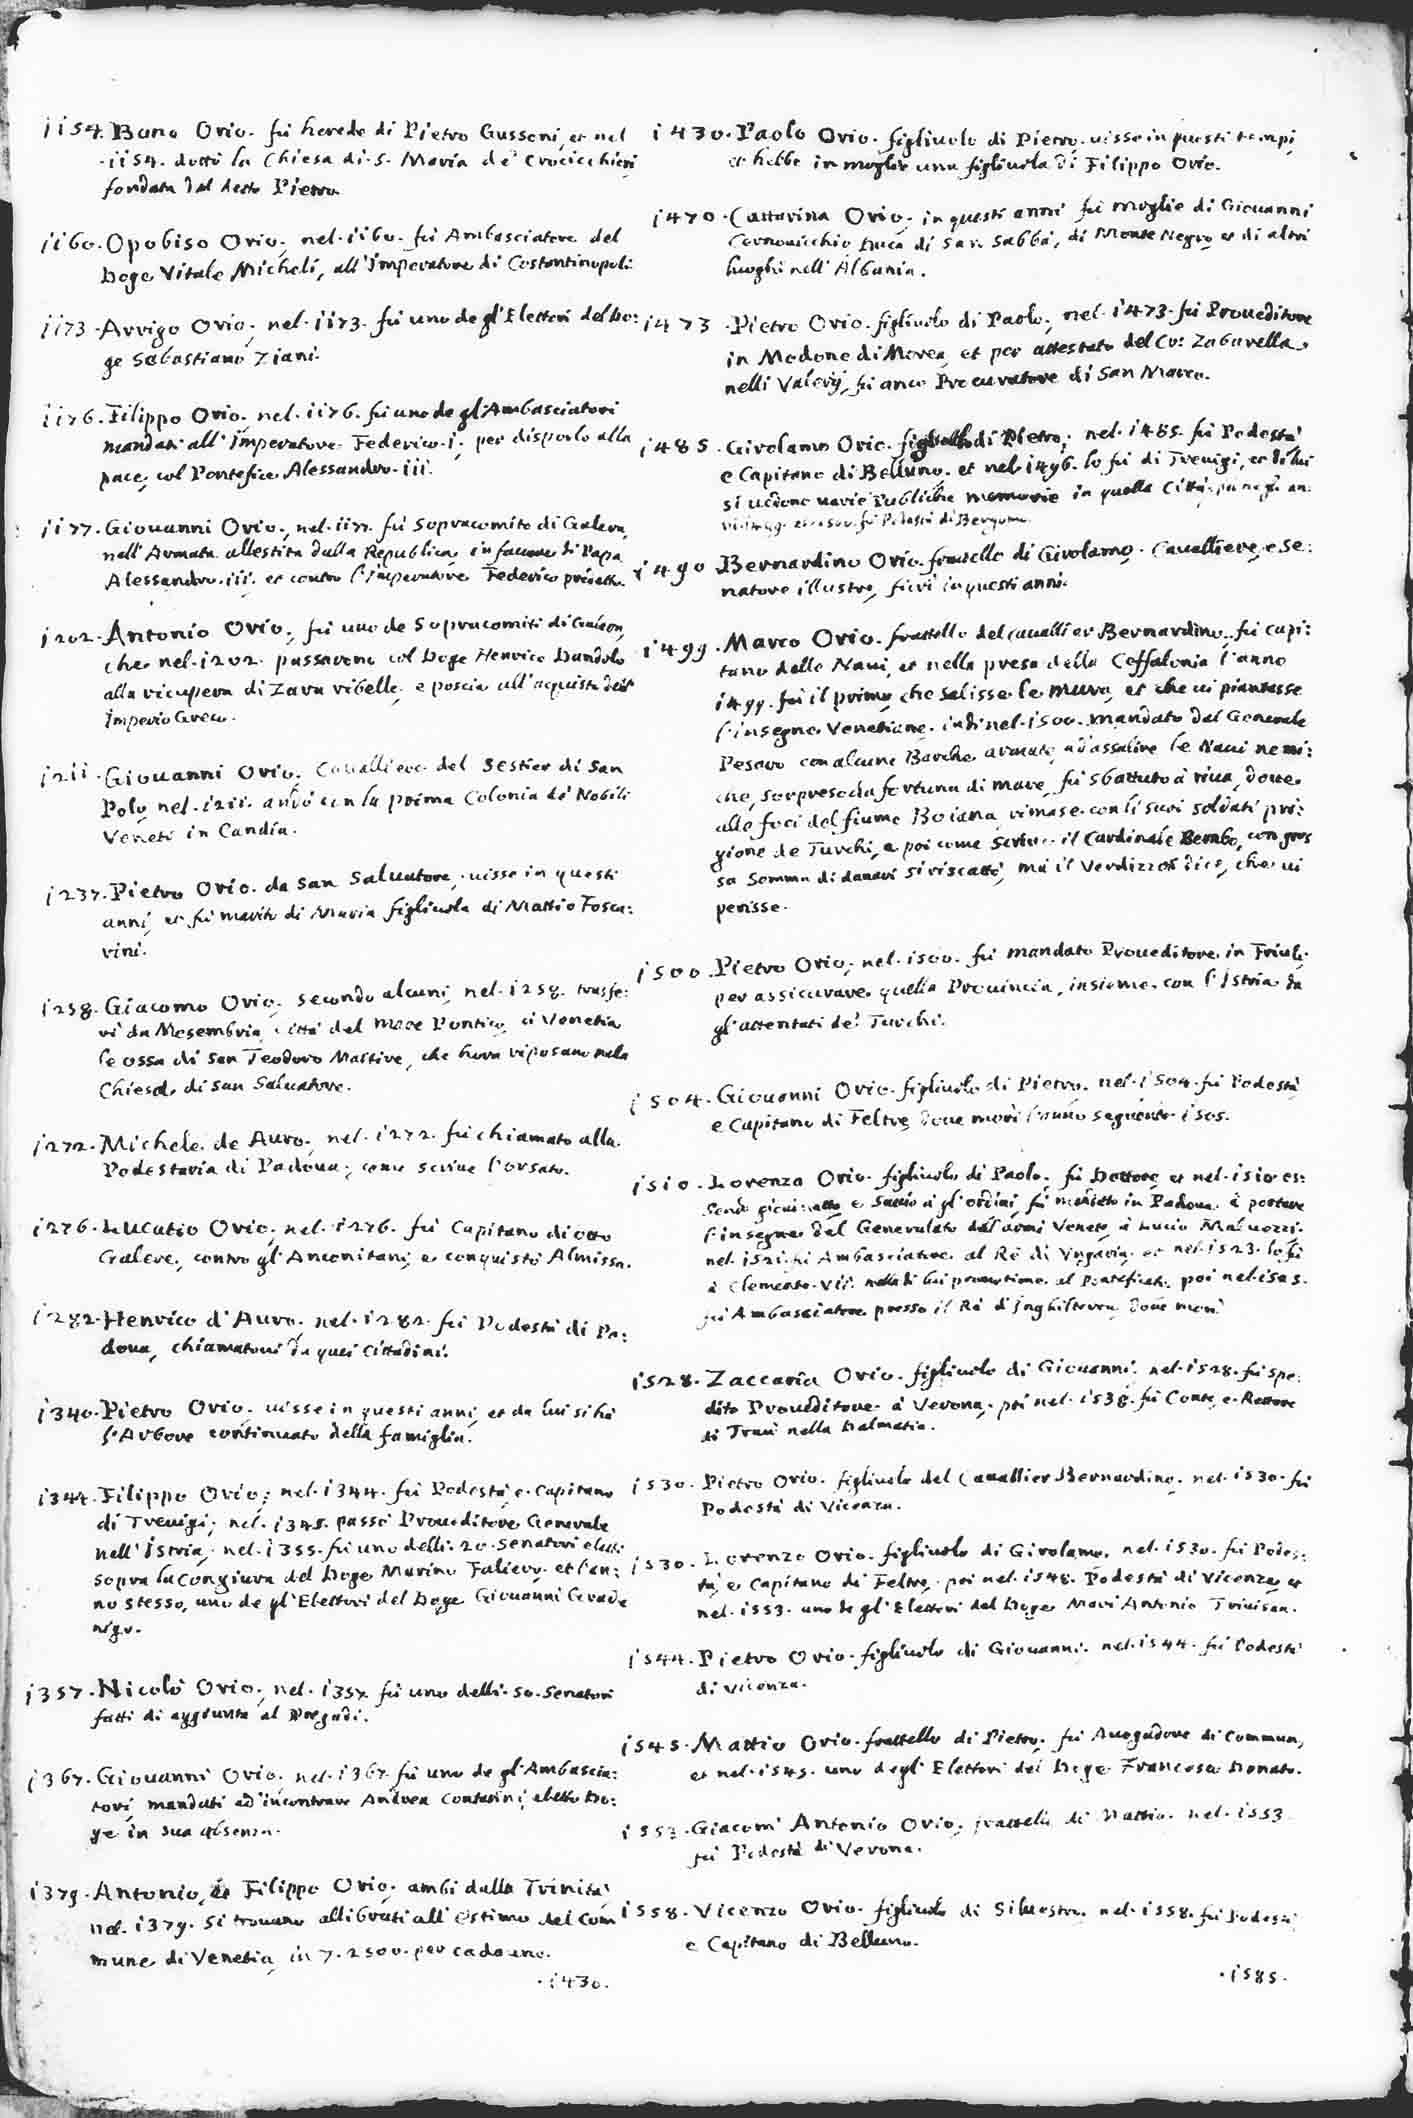 1154. Bono Orio. fù herede di Pietro Gussoni, et nel
·1154. dottò la Chiesa di·S· Maria de' Crocicchieri
fondata dal detto Pietro.
1160. Opobiso Orio, nel·1160· fù Ambasciatore del
Doge Vitale Micheli, all'Imperatore di Costantinopoli.
1173. Arrigo Orio, nel·1173· fù uno de gl'Elettori del Do:
ge Sebastiano Ziani.
1176. Filippo Orio, nel·1176. fù uno de gl'Ambasciatori
mandati all'Imperatore Federico·i, per disporlo alla
pace, col Pontefice Alessandro·iii.
1177. Giovanni Orio, nel·1177. fù Sopracomito di Galera,
nell'Armata allestita dalla Republica, in favore di Papa
Alessandro·iii, et contro l'Imperatore Federico predetto.
1202. Antonio Orio, fù uno de Sopracomiti di Galera,
che nel·1202. passarono col Doge Henrico Dandolo
alla ricupera di Zara ribelle, e poscia all'acquisto dell'
Imperio Greco.
1211. Giovanni Orio. Cavalliere del Sestier di San
Polo, nel·1211. andò con la prima Colonia de' Nobili
Veneti in Candia.
1237. Pietro Orio. da San Salvatore, visse in questi
anni, et fù marito di Maria figliuola di Mattio Fosca:
rini.
1258. Giacomo Orio, secondo alcuni, nel·1258. trasfe:
rì da Mesembria, Città del Mare Pontico, à Venetia
le ossa di San Teodoro Martire, che hora riposano nela
Chiesa di San Salvatore.
1272. Michele de Auro, nel·1272. fù chiamato alla
Podestaria di Padoua, come scriue l'Orsato.
1276. Lucatio Orio, nel·1276. fù Capitano di otto
Galere, contro gl'Anconitani, e conquistò Almissa.
1282. Henrico d'Auro, nel·1282· fù Podestà di Pa:
doua, chiamatoui da quei Cittadini.
1340. Pietro Orio. uisse in questi anni, et da lui si hà
l'Arbore continuato della famiglia.
1344. Filippo Orio, nel·1344. fù Podestà, e Capitano
di Treuigi; nel·1345. passò Proueditore Generale
nell'Istria, nel·1355. fù uno delli·20·Senatori eletti
sopra la Congiura del Doge Marino Faliero, et l'an:
no stesso, uno de gl'Elettori del Doge Giouanni Grade
nigo.
1357. Nicolò Orio, nel·1357. fù uno delli·50·Senatori
fatti di aggiunta al Pregadi.
1367. Giouanni Orio, nel·1367. fù uno de gl'Ambascia:
tori, mandati ad incontrare Andrea Contarini, eletto Do:
ge in sua absenza.
1379. Antonio, et Filippo Orio, ambi dalla Trinità,
nel·1379. si trouano allibrati all'estimo del Com
mune di Venetia, in 7. 2500. per cadauno.
·1430.
1430. Paolo Orio. figliuolo di Pietro. uisse in questi tempi,
et hebbe in moglie una figliuola di Filippo Orio.
1470. Cattarina Orio, in questi anni fù moglie di Giouanni
Cernouicchio Duca di San Sabbà, di Monte Negro, et di altri
luoghi nell'Albania.
1473 .Pietro Orio. figliuolo di Paolo, nel·1473. fù Proueditore
in Modone di Morea, et per attestato del Co: Zabarella,
nelli Valerij, fù anco Procuratore di San Marco.
1485. Girolamo Orio. figliuolo di Pietro, nel·1485. fù Podestà,
e Capitano di Belluno. et nel·1496. lo fù di Treuigi, et di lui
si uedono uarie Publiche memorie in quella Città,
fù Podestà di Bergomo.
1490 Bernardino Orio. fratello di Girolamo. Cavalliere, e Se:
natore illustre, fiorì in questi anni.
1499. Marco Orio. frattello del Cavallier Bernardino, fù capi:
tano delle Naui, et nella presa della Ceffalonia l'anno
1499. fù il primo, che salisse le mura, et che ui piantasse
l'insegne Venetiane. indi nel·1500. mandato dal Generale
Pesaro con alcune Barche armate, ad assalire le Naui nemi:
che, sorpreso da fortuna di mare, fù sbattuto à riua, doue
alle foci del fiume Boiana, rimase con li suoi soldati pri:
gione de Turchi, e poi come scriue il Cardinale Bembo, con gros
sa somma di danari si riscattò, mà il Verdizzoti dice, che ui
perisse.
1500. Pietro Orio, nel·1500. fù mandato Proueditore in Friuli
per assicurare quella Prouincia, insieme con l'Istria da
gl'attentati de' Turchi.
1504. Giouanni Orio. figliuolo di Pietro. nel·1504. fù Podestà,
e Capitano di Feltre, doue morì l'anno seguente 1505.
1510. Lorenzo Orio. figliuolo di Paolo, fù Dottore, et nel·1510 es:
sendo e Sauio à gl'ordini, fù mandato in Padoua. à portare
l'insegne dal Generalato dell'armi Venete, à Lucio Maluezzi.
nel·1521. fù Ambasciatore al Rè di Vngaria. et nel·1523. lo fù
à Clemente·vii. poi nel·1525.
fù Ambasciatore presso il Rè d'Inghilterra, doue morì.
1528. Zaccaria Orio. figliuolo di Giouanni, nel·1528. fù spe:
dito Proueditore à Verona, poi nel·1538. fù Conte, e Rettore
di Traù nella Dalmatia.
1530. Pietro Orio. figliuolo del Cauallier Bernardino, nel·1530. fù
Podestà di Vicenza.
1530. Lorenzo Orio. figliuolo di Girolamo, nel·1530. fù Podes:
tà, e Capitano di Feltre, poi nel·1548. Podestà di Vicenza, et
nel·1553. uno de gl'Elettori del Doge Marc'Antonio Triuisan.
1544. Pietro Orio. figliuolo di Giouanni. nel·1544. fù Podestà
di Vicenza.
1545. Mattio Orio. frattello di Pietro. fù Auogadore di Commun,
et nel·1545. uno degl'Elettori del Doge Francesco Donato.
1553. Giacom'Antonio Orio, frattello di Mattio. nel·1553
fù Podestà di Verona.
1558. Vicenzo Orio. figliuolo di Siluestro. nel·1558. fù Podestà,
e Capitano di Belluno.
·1585.